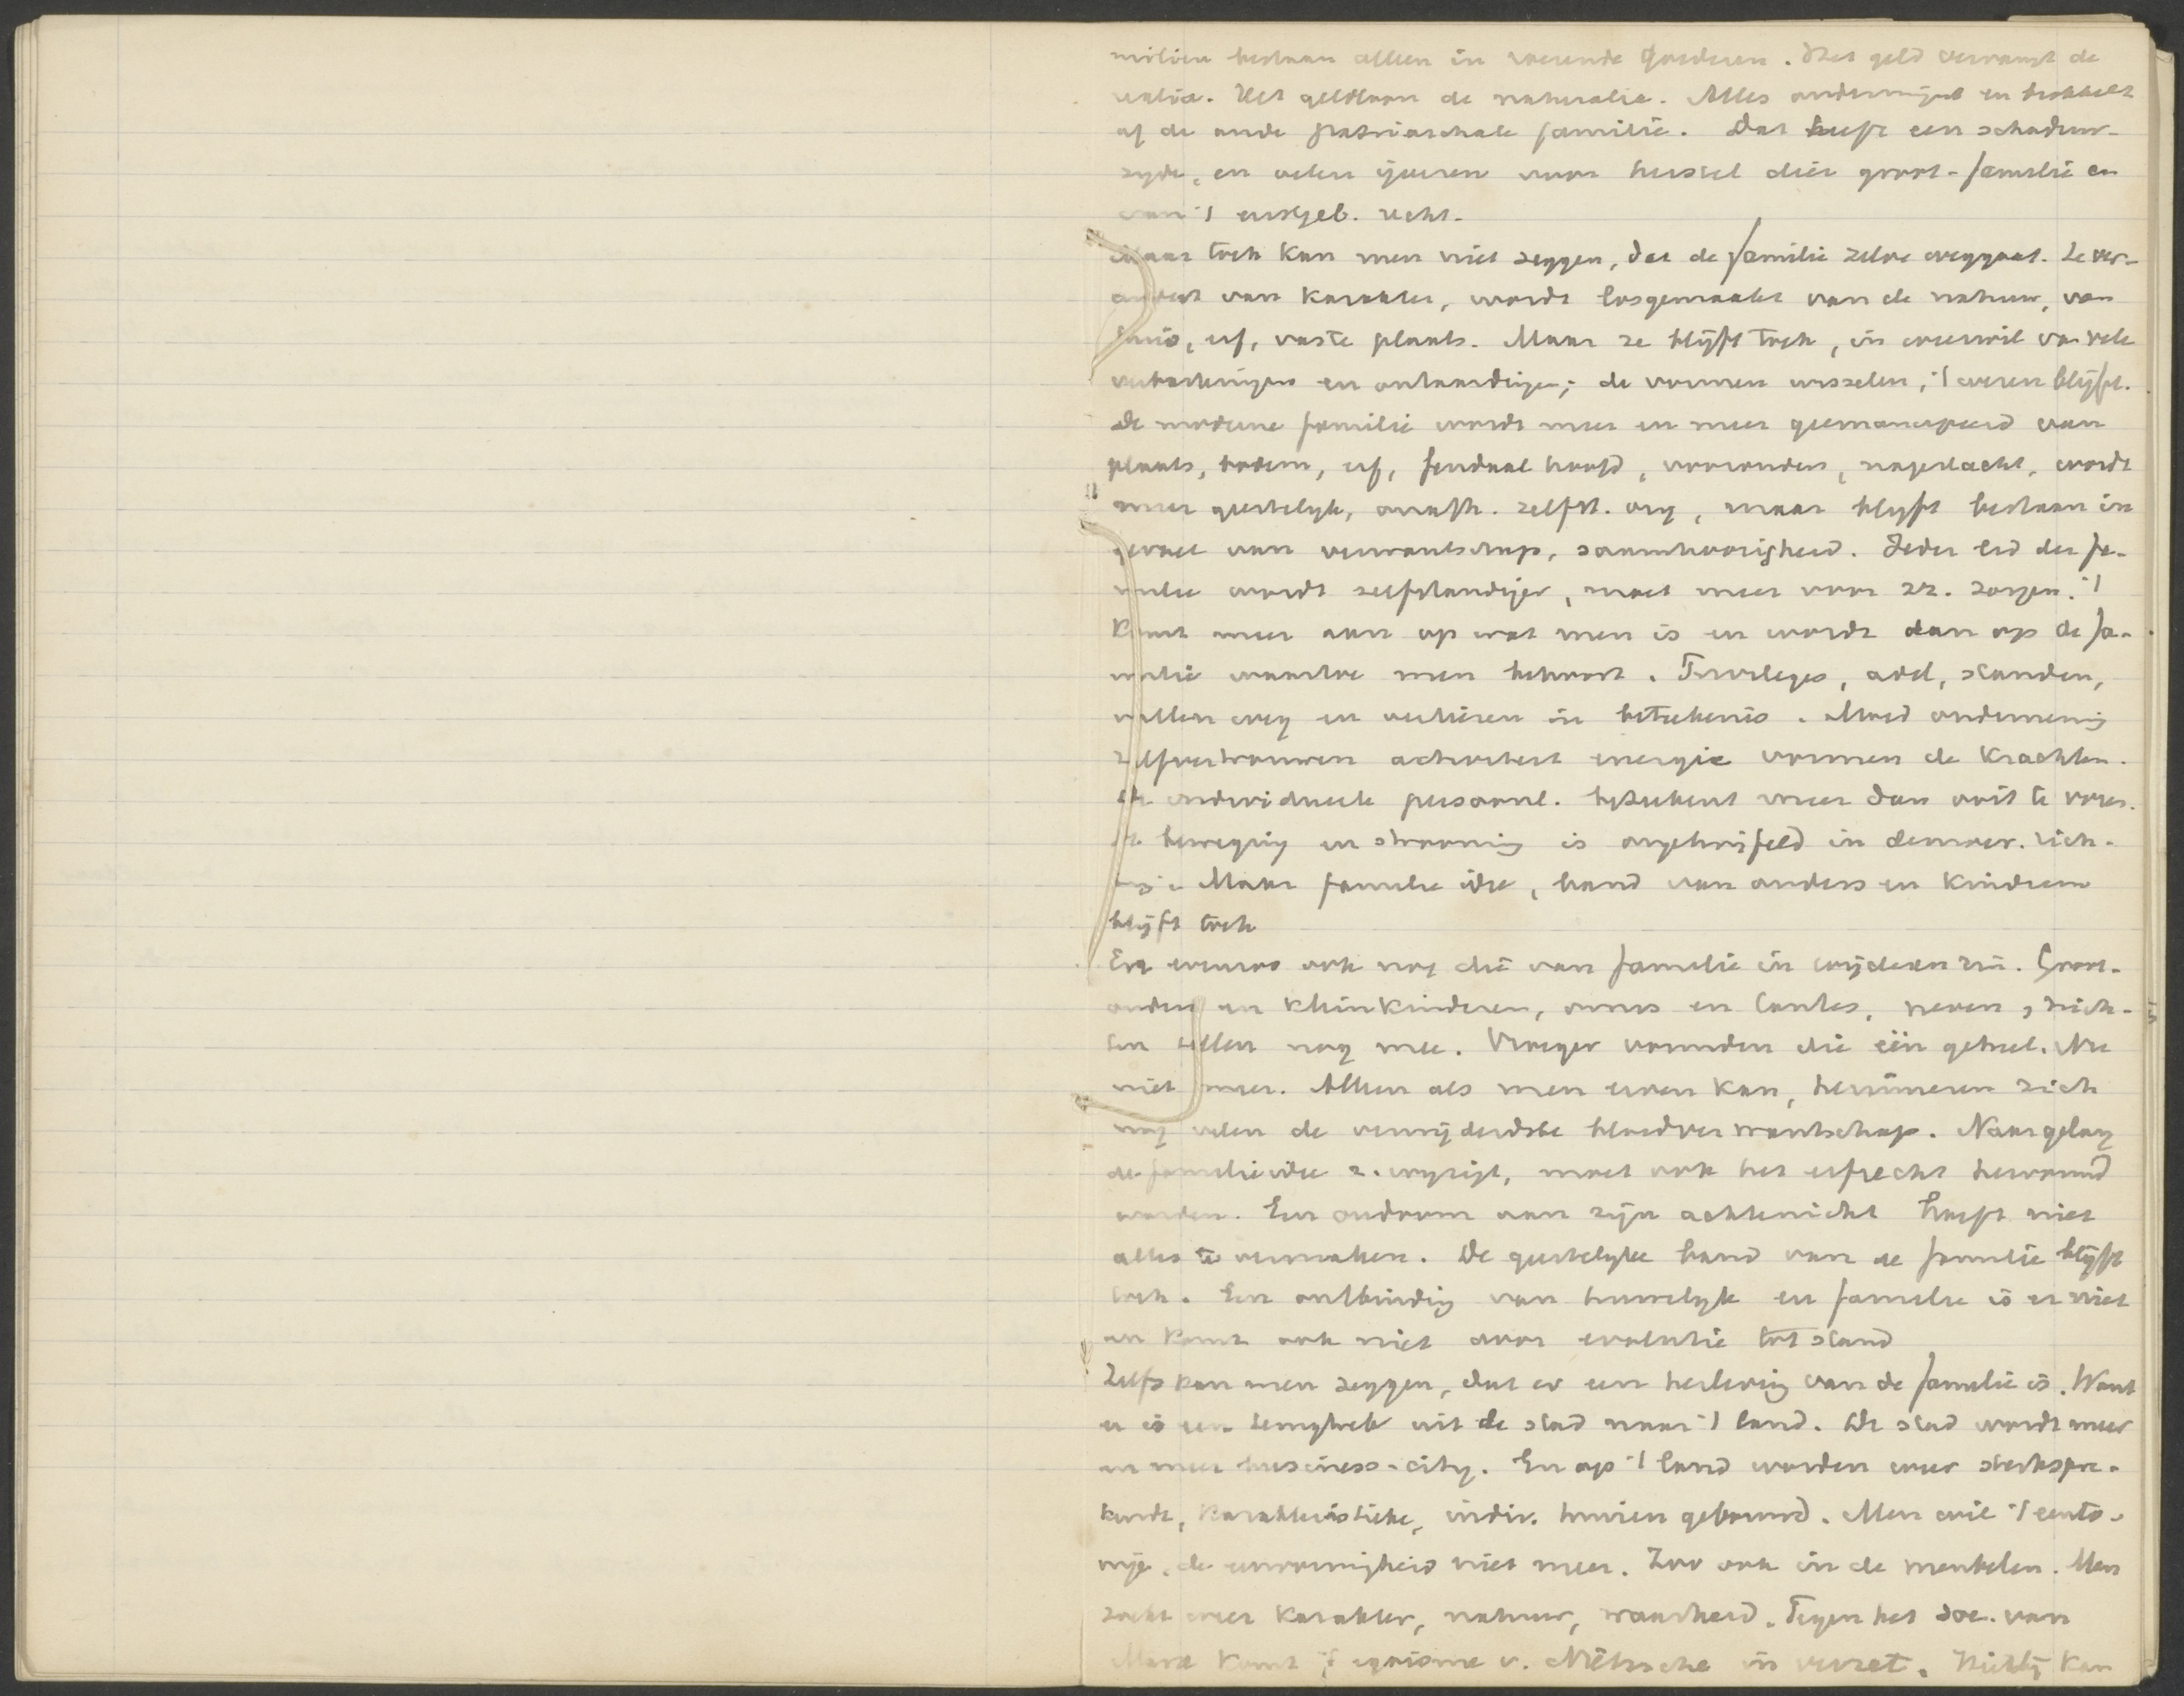 milien bestaan alleen in roerende goederen. Het geld vervangt de
realia. Het geldloon de naturalia. Alles ondermijnt en brokkelt
af de oude patriarchale familie. Dat heeft een schaduw-
zyde, en velen ijveren voor herstel dier groot-familie en
van 't eerstgeb. recht.
Maar toch kan men niet zeggen, dat de familie zelve weggaat. Ze ver-
andert van karakter, wordt losgemaakt van de natuur, van
huis, erf, vaste plaats. Maar ze blijft toch, in weerwil van vele
verbasteringen en ontaardingen; de vormen wisselen, 't wezen blijft.
De moderne familie wordt meer en meer geemancipeerd van
plaats, bodem, erf, feudaal hoofd, voorouders, nageslacht, wordt
meer geestelyk, onafh. zelfst. org, maar blyft bestaan in
gevoel van verwantschap, saamhoorigheid. Ieder lid der fa-
milie wordt zelfstandiger, moet meer voor zz. zorgen. 't
Komt meer aan op wat men is en wordt dan op de fa-
milie waartoe men behoort. Privileges, adel, standen,
vallen weg en verliezen in beteekenis. Moed onderneming
zelfvertrouwen activiteit energie vormen de krachten.
De individueele persoonl. beteekent meer dan ooit te voren.
De beweging en strooming is ongetwijfeld in democr. rich-
ting. Maar familie idee, band van ouders en kinderen
blijft toch
En evenzoo ook nog die van familie in wijderen zin. Groot-
ouders en kleinkinderen, ooms en tantes, neven, nich-
ten tellen nog mee. Vroeger vormden die één geheel. Nu
niet meer. Alleen als men erven kan, herinneren zich
nog velen de verwijderdste bloedverwantschap. Naargelang
de familieidee z. wyzigt, moet ook het erfrecht hervormd
worden. Een oudoom aan zijn achternicht hoeft niet
alles te vermaken. De geestelyke band van de familie blijft
toch. Een ontbinding van huwelyk en familie is er niet
en komt ook niet door evolutie tot stand
Zelfs kan men zeggen, dat er een herleving van de familie is. Want
er is een terugtrek uit de stad naar 't land. De stad wordt meer
en meer business-city. En op 't land worden weer sterkspre-
kende, karakteristieke, indiv. huizen gebouwd. Men wil 't eento-
nige, de eenvormigheid niet meer. Zoo ook in de meubelen. Men
zoekt weer karakter, natuur, waarheid. Tegen het soc. van
Marx komt 't egoisme v. Nietzsche in verzet. Richting kan